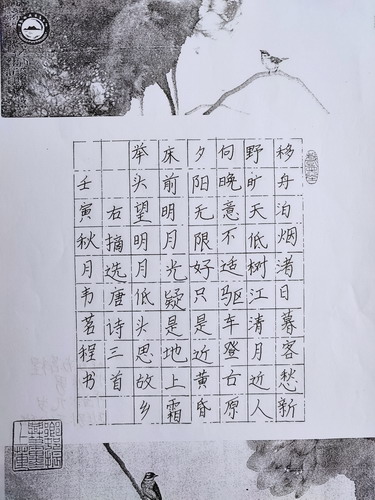 移舟泊烟渚日暮客愁新
野旷天低树江清月近人
向晚意不适驱车登古原
夕阳无限好只是近黄昏
床前明月光疑是地上霜
举头望明月低头思故乡
右摘选唐诗三首
壬寅秋月韦茗程书